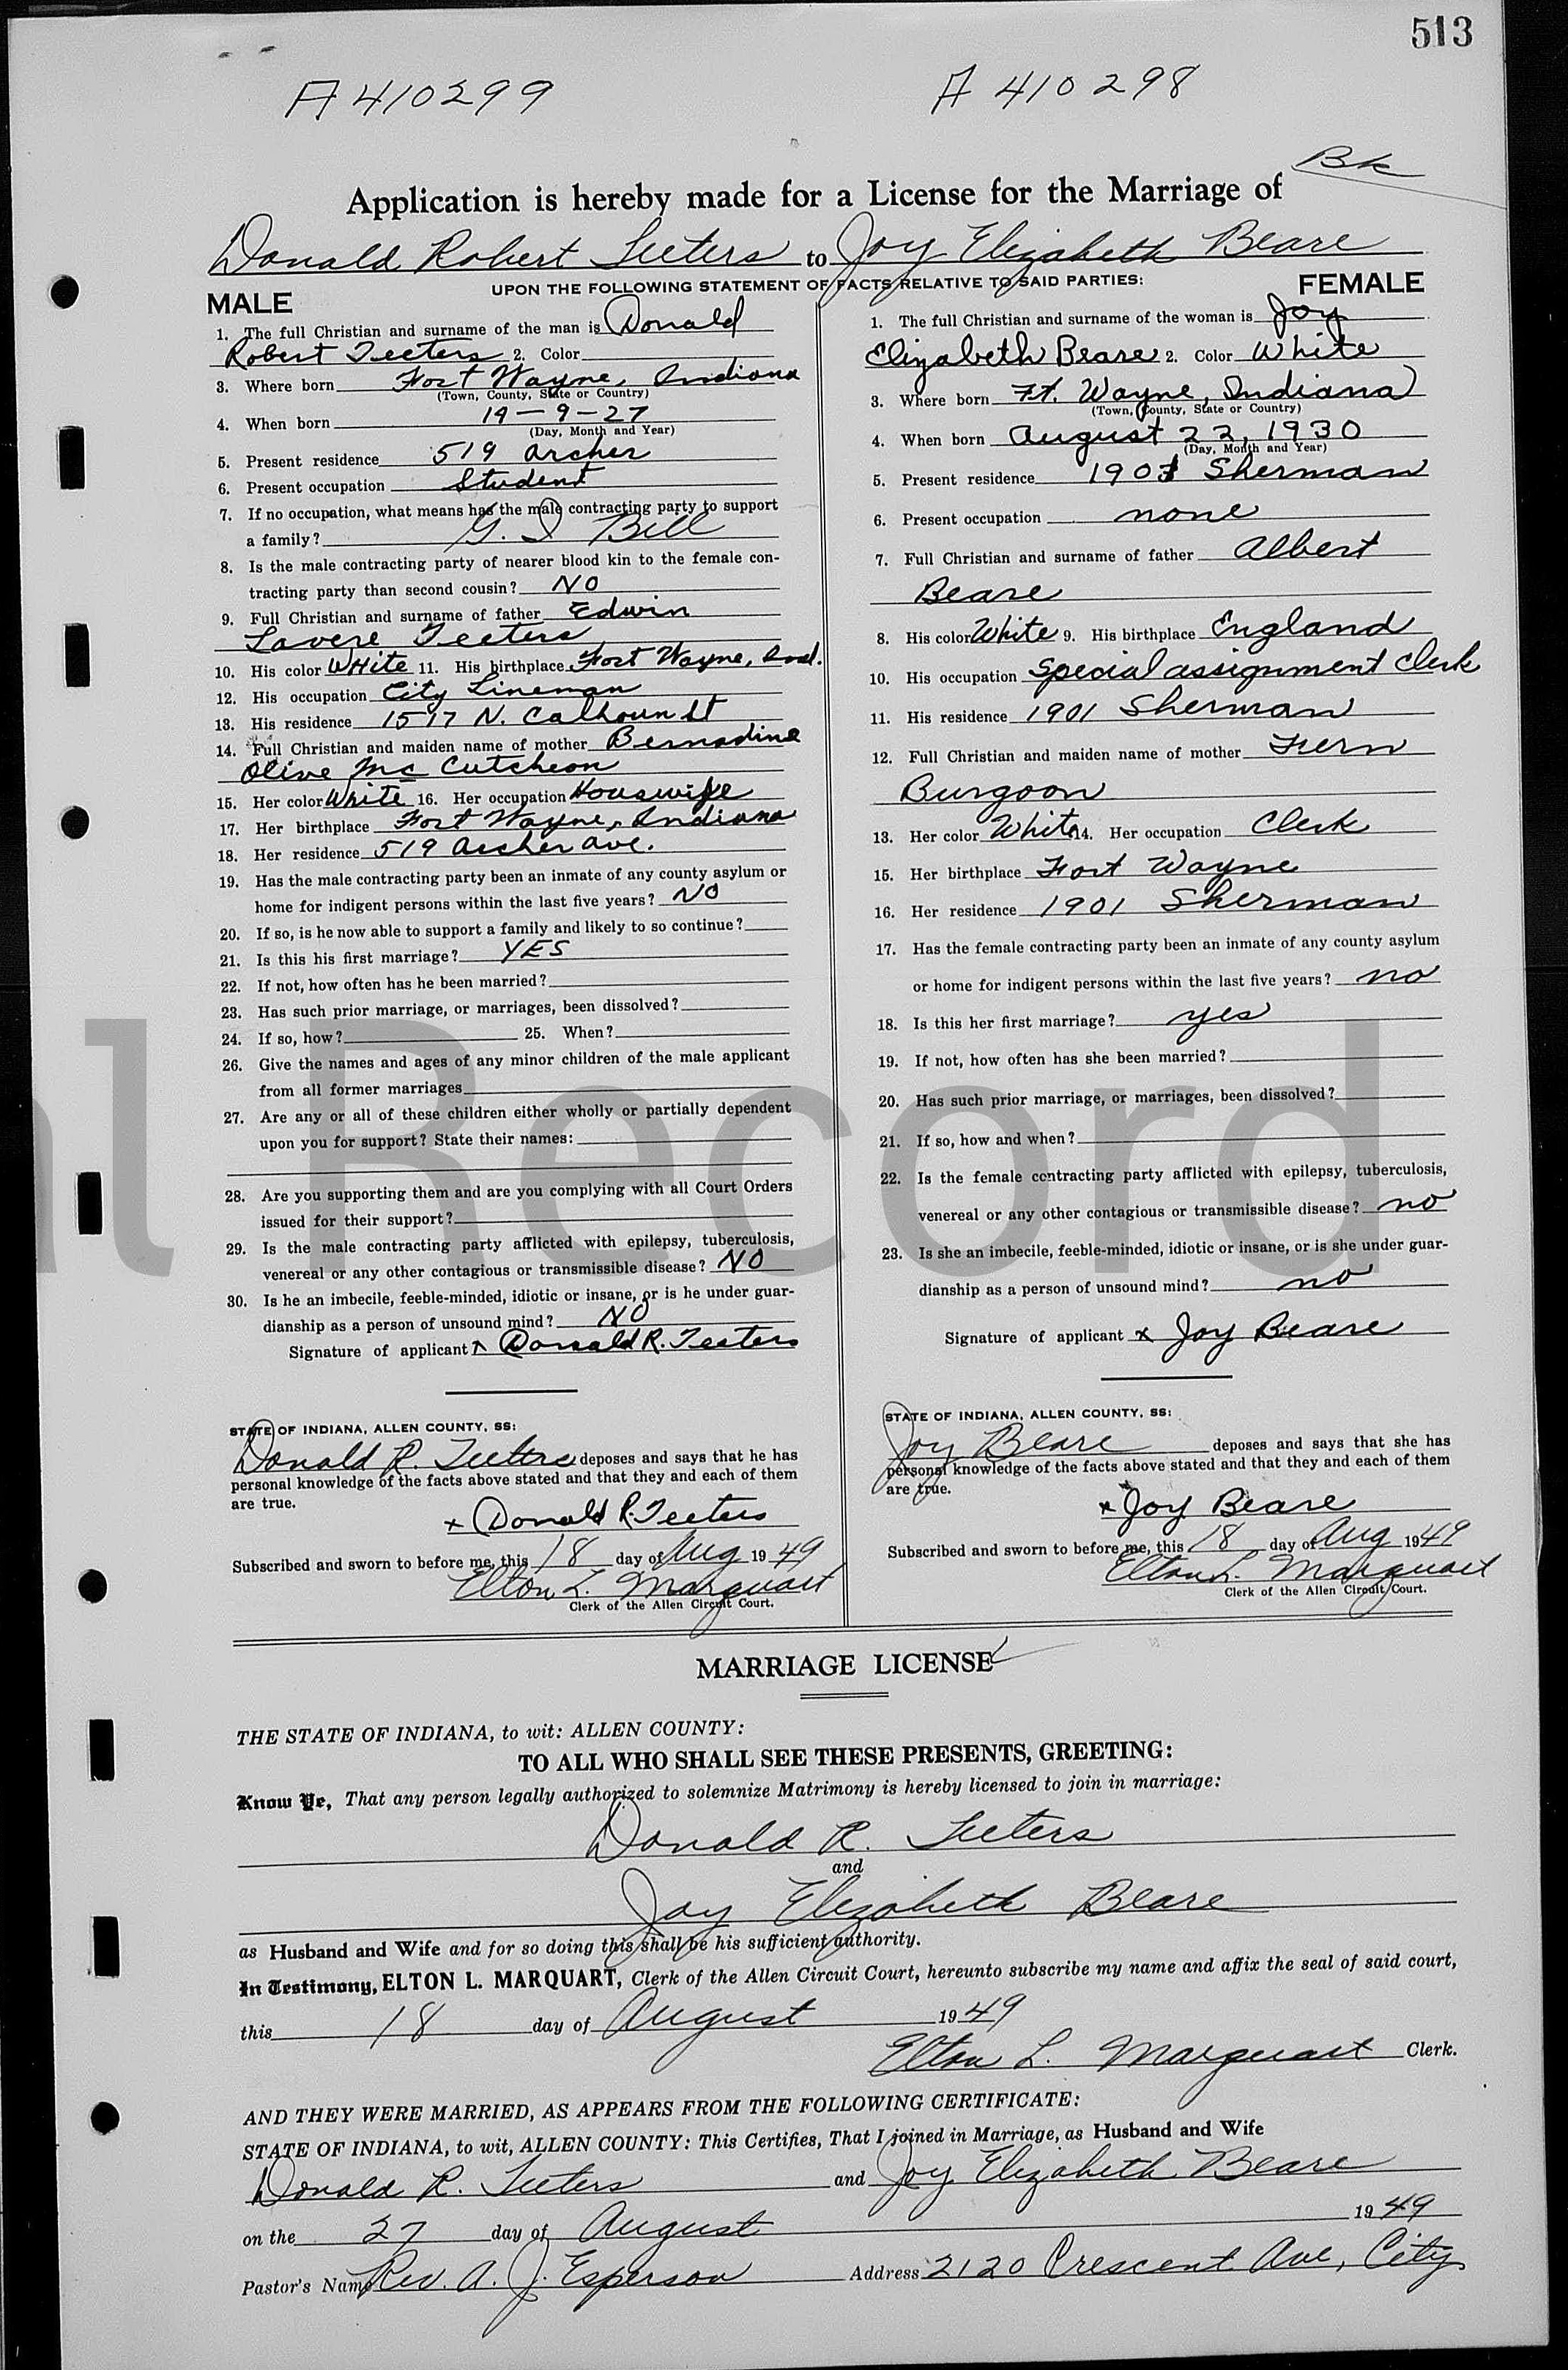 513
A 410299 A 410298
Bk
Application is hereby made for a License for the Marriage of
Donald Robert Teeters to Joy Elizabeth Beare
UPON THE FOLLOWING STATEMENT OF FACTS RELATIVE TO SAID PARTIES:
MALE
1. The full Christian and surname of the man is Donald
Robert Teeters 2. Color
3. Where born Fort Wayne, Indiana
(Town, County, State or Country)
4. When born 19-9-27
(Day, Month and Year)
5. Present residence 519 Archer
6. Present occupation Student
7. If no occupation, what means has the male contracting party to support
a family? G. I Bill
8. Is the male contracting party of nearer blood kin to the female con-
tracting party than second cousin? NO
9. Full Christian and surname of father Edwin
Lavere Teeters
10. His color White 11. His birthplace Fort Wayne, Ind.
12. His occupation City Lineman
13. His residence 1517 N. Calhoun St
14. Full Christian and maiden name of mother Bernadine
Olive Mc Cutcheon
15. Her color White 16. Her occupation Housewife
17. Her birthplace Fort Wayne, Indiana
18. Her residence 519 Archer Ave.
19. Has the male contracting party been an inmate of any county asylum or
home for indigent persons within the last five years? NO
20. If so, is he now able to support a family and likely to so continue?
21. Is this his first marriage? YES
22. If not, how often has he been married?
23. Has such prior marriage, or marriages, been dissolved?
24. If so, how? 25. When?
26. Give the names and ages of any minor children of the male applicant
from all former marriages
27. Are any or all of these children either wholly or partially dependent
upon you for support? State their names:
28. Are you supporting them and are you complying with all Court Orders
issued for their support?
29. Is the male contracting party afflicted with epilepsy, tuberculosis,
venereal or any other contagious or transmissible disease? NO
30. Is he an imbecile, feeble-minded, idiotic or insane, or is he under guar-
dianship as a person of unsound mind? NO
Signature of applicant x Donald R. Teeters
STATE OF INDIANA, ALLEN COUNTY, SS:
Donald R. Teeters deposes and says that he has
personal knowledge of the facts above stated and that they and each of them
are true.
x Donald R. Teeters
Subscribed and sworn to before me, this 18 day of Aug 1949
Elton L. Marquart
Clerk of the Allen Circuit Court.
FEMALE
1. The full Christian and surname of the woman is Joy
Elizabeth Beare 2. Color White
3. Where born Ft. Wayne, Indiana
(Town, County, State or Country)
4. When born August 22, 1930
(Day, Month and Year)
5. Present residence 1901 Sherman
6. Present occupation none
7. Full Christian and surname of father Albert
Beare
8. His color White 9. His birthplace England
10. His occupation Special assignment Clerk
11. His residence 1901 Sherman
12. Full Christian and maiden name of mother Fern
Burgoon
13. Her color White 14. Her occupation Clerk
15. Her birthplace Fort Wayne
16. Her residence 1901 Sherman
17. Has the female contracting party been an inmate of any county asylum
or home for indigent persons within the last five years? no
18. Is this her first marriage? yes
19. If not, how often has she been married?
20. Has such prior marriage, or marriages, been dissolved?
21. If so, how and when?
22. Is the female contracting party afflicted with epilepsy, tuberculosis,
venereal or any other contagious or transmissible disease? no
23. Is she an imbecile, feeble-minded, idiotic or insane, or is she under guar-
dianship as a person of unsound mind? no
Signature of applicant x Joy Beare
STATE OF INDIANA, ALLEN COUNTY, SS:
Joy Beare deposes and says that she has
personal knowledge of the facts above stated and that they and each of them
are true.
x Joy Beare
Subscribed and sworn to before me, this 18 day of Aug 1949
Elton L. Marquart
Clerk of the Allen Circuit Court.
l Record
MARRIAGE LICENSE
THE STATE OF INDIANA, to wit: ALLEN COUNTY:
TO ALL WHO SHALL SEE THESE PRESENTS, GREETING:
Know Ye, That any person legally authorized to solemnize Matrimony is hereby licensed to join in marriage:
Donald R. Teeters
and
Joy Elizabeth Beare
as Husband and Wife and for so doing this shall be his sufficient authority.
In Testimony, ELTON L. MARQUART, Clerk of the Allen Circuit Court, hereunto subscribe my name and affix the seal of said court,
this 18 day of August 1949
Elton L. Marquart Clerk.
AND THEY WERE MARRIED, AS APPEARS FROM THE FOLLOWING CERTIFICATE:
STATE OF INDIANA, to wit, ALLEN COUNTY: This Certifies, That I joined in Marriage, as Husband and Wife
Donald R. Teeters and Joy Elizabeth Beare
on the 27 day of August 1949
Pastor's Name Rev. A. J. Esperson Address 2120 Crescent Ave, City